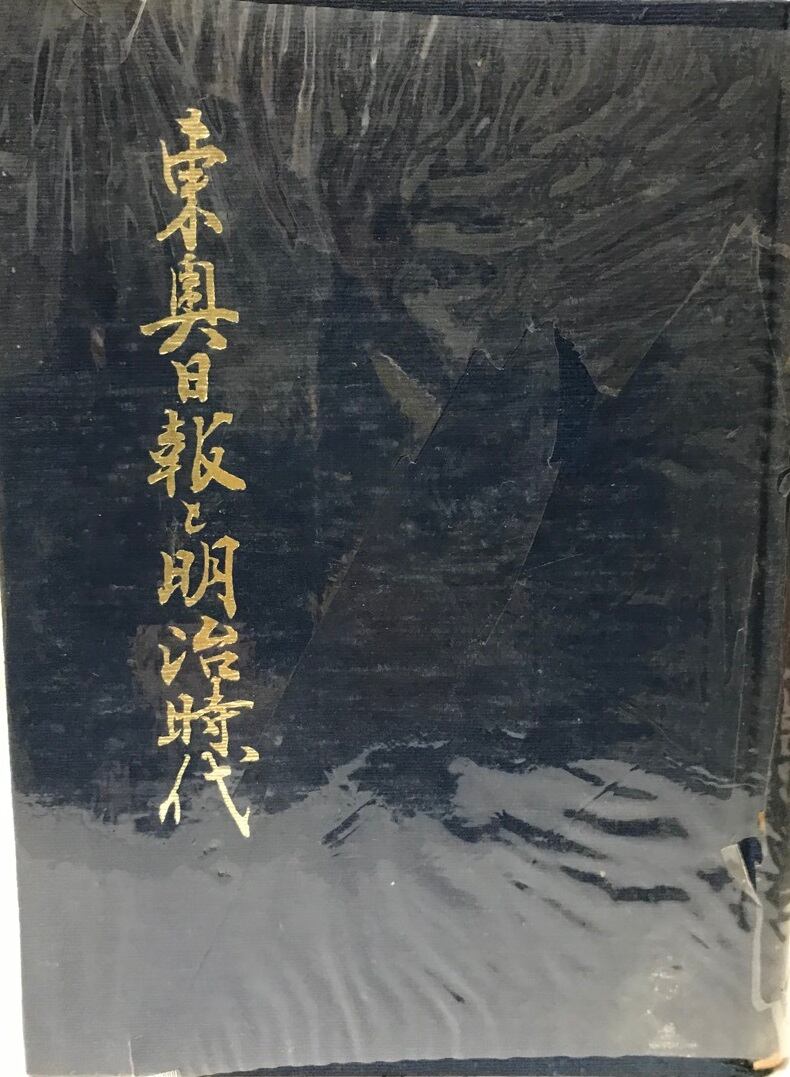 東奥日報と明治時代